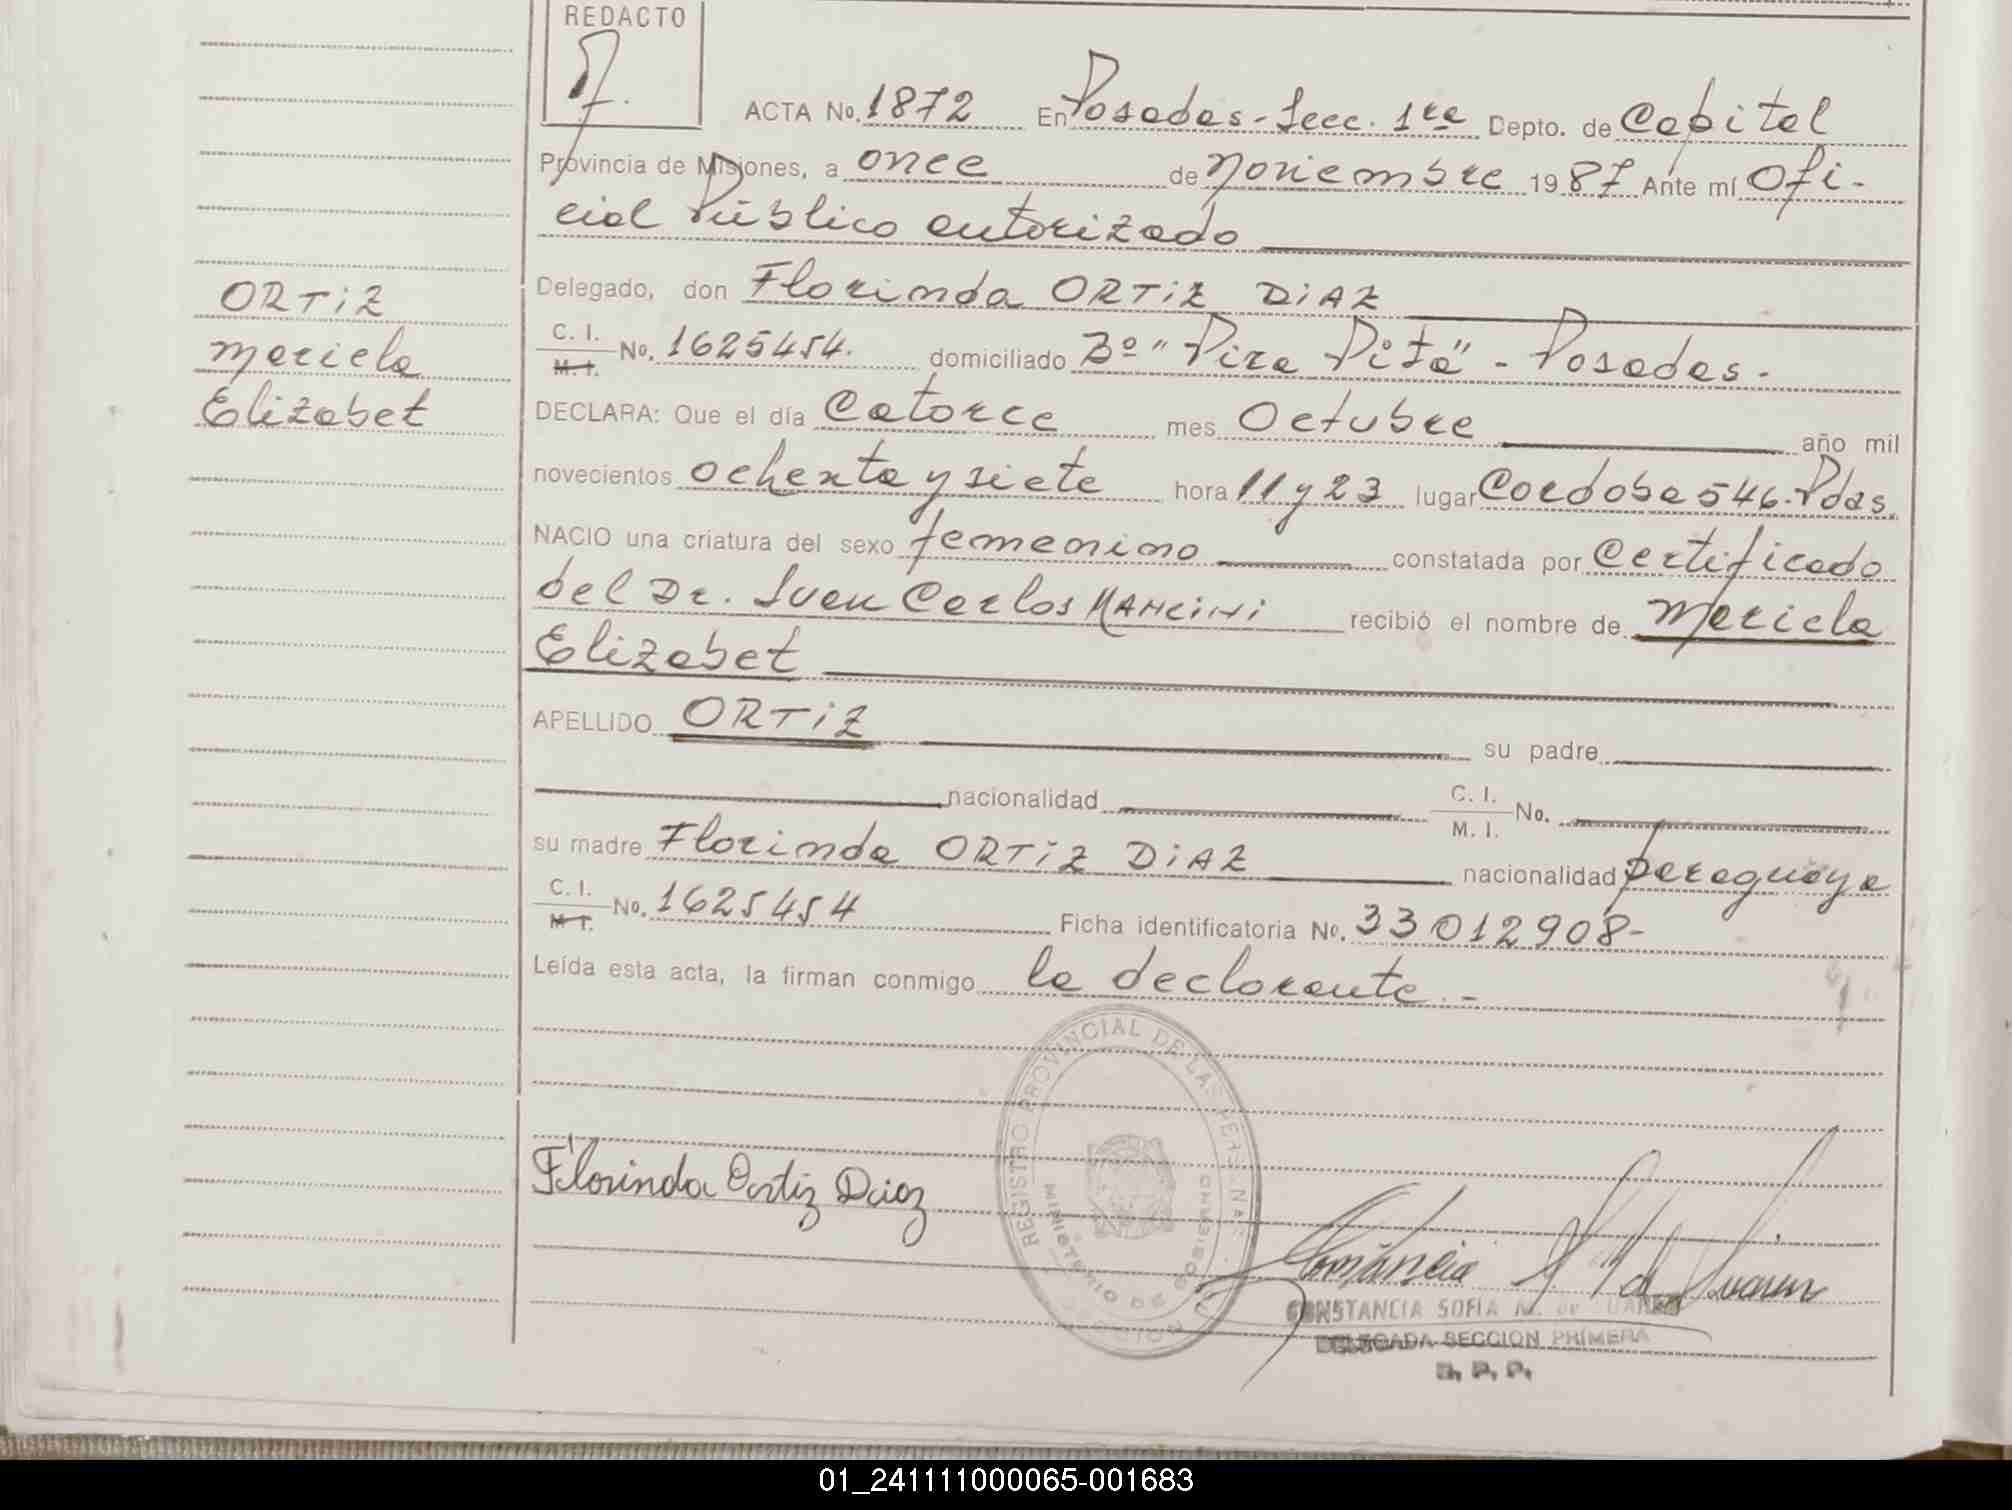 REDACTO
ACTA No. 1872 En Posadas - Secc. 1ra Depto. de Capital
Provincia de Misiones, a once de noviembre 1987 Ante mí Ofi-
cial Público autorizado
Delegado, don Florinda ORTiZ DiAZ
ORTiZ
C. I. M. I. No. 1625454. domiciliado Bº "Pira Pitá" - Posadas.
Mariela
DECLARA: Que el día Catorce mes Octubre año mil
Elizabet
novecientos ochenta y siete hora 11 y 23 lugar Cordoba 546. Pdas.
NACIO una criatura del sexo femenino constatada por Certificado
del Dr. Juan Carlos MANCiNi recibió el nombre de Mariela
Elizabet
APELLIDO ORTiZ su padre
nacionalidad C. I. M. I. No.
su madre Florinda ORTiZ DiAZ nacionalidad paraguaya
C. I. M. I. No. 1625454 Ficha identificatoria No. 33012908-
Leída esta acta, la firman conmigo la declarante. -
REGISTRO PROVINCIAL DE LAS PERSONAS
MINISTERIO DE GOBIERNO
Florinda Ortiz Diaz
Constancia S M de Suarez
CONSTANCIA SOFIA M. de SUAREZ
DELEGADA SECCION PRIMERA
R. P. P.
01_241111000065-001683